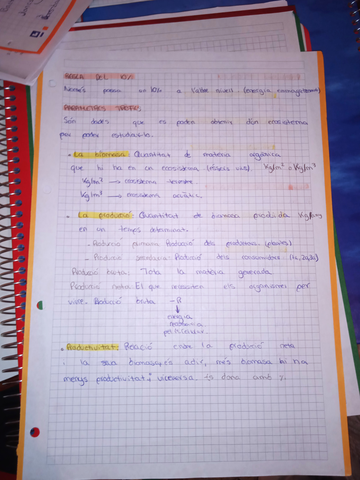 REGLA DEL 10%
Només passa un 10% a l'altre nivell. (energia
PARÀMETRES TRÒFICS
Són dades que es poden obtenir d'un ecosistema
per poder estudiar-lo.
• La biomassa: Quantitat de matèria orgànica
que hi ha en un ecosistema (éssers vius). Kg/m² o Kg/m³
Kg/m² → ecosistema terrestre.
Kg/m³ → ecosistema aquàtic.
• La producció: Quantitat de biomassa produïda Kg/
en un temps determinat.
- Producció primària: Producció dels productors (plantes)
- Producció secundària: Producció dels consumidors (1r, 2n, 3r)
Producció bruta: Tota la matèria generada.
Producció neta: El que els organismes per
viure. Producció bruta - R
↓
energia
per
• Productivitat: Relació entre la producció neta
i la seva biomassa, és a dir, més biomassa hi ha
menys productivitat i viceversa. Es dona amb %.